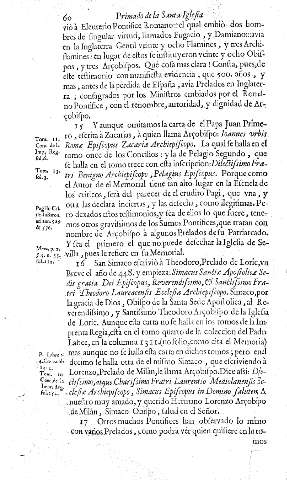 60 Primado de la Santa Iglesia
viò à Eleuterio Pontifice Romano en el qual embiò dos hombres
de singular virtud, llamados Fugacio, y Damiano: avia
en la Inglaterra Gentil veinte y ocho Flamines, y tres Archiflamines:
en lugar de ellos se instituyeron veinte y ocho Obispos,
y tres Arçobispos. Què cosa mas clara? Consta, pues, de
este testimonio con manifiesta evidencia, que 500. años, y
mas, antes de la perdida de España, avia Prelados en Inglaterra
; consagrados por los Ministros embiados por el Romano
Pontifice, con el renombre, autoridad, y dignidad de Arçobispo.
15 Y aunque omitamos la carta de el Papa Juan Primero,
escrita à Zacarias, à quien llama Arçobispo: Ioannes urbis
Romæ Episcopus Zacariæ Archiepiscopo. La qual se halla en el
tomo once de los Concilios: y la de Pelagio Segundo, que
se halla en el tomo trece con esta inscripcion: Dilectissimo Fratri
Benigno Archiepiscopo, Pelagius Episcopus. Porque como
el Autor de el Memorial tiene tan alto lugar en la Escuela de
los criticos, serà del parecer de el erudito Pagi, que una, y
otra las declara inciertas, y las defecha, como ilegitimas. Pero
dexados estos testimonios, y sea de ellos lo que fuere, tenemos
otros gravissimos de los Sumos Pontifices, que tratan con
nombre de Arçobispo à algunos Prelados de su Patriarcado.
Y sea el primero el que no puede desechar la Iglesia de Sevilla,
pues le refiere en su Memorial.
16 San Simaco escriviò à Theodoro, Prelado de Lorie, va
Breve el año de 448. y empieza: Simacus Sanctæ Apostolicæ Sedis
gratia Dei Episcopus, Reverendissimo, & Sanctissimo Fratri
Theodoro Laureacensis Ecclesiæ Archiepiscopo. Simaco, por
la gracia de Dios, Obispo de la Santa Sede Apostolica, al Reverendissimo,
y Santissimo Theodoro Arçobispo de la Iglesia
de Lorie. Aunque esta carta no se halla en los tomos de la Imprenta
Regia, està en el tomo quinto de la coleccion del Padre
Labee, en la columna 1321 (no folio, como cita el Memorial)
mas aunque no se halla esta carta en dichos tomos, pero en el
decimo se halla esta de el mismo Simaco, que escriviendo à
Lorenzo, Prelado de Milàn, le llama Arçobispo. Dice assi: Dilectissimo,
atque Charissimo Fratri Laurentio Mediolanensis Ecclesiæ
Archiepiscopo, Simacus Episcopus in Domino salutem. A
nuestro muy amado, y querido Hermano Lorenzo Arçobispo
de Milàn, Simaco Obispo, salud en el Señor.
17 Otros muchos Pontifices han observado lo mismo
con varios Prelados, como podrà vèr quien quisiere en los tomos